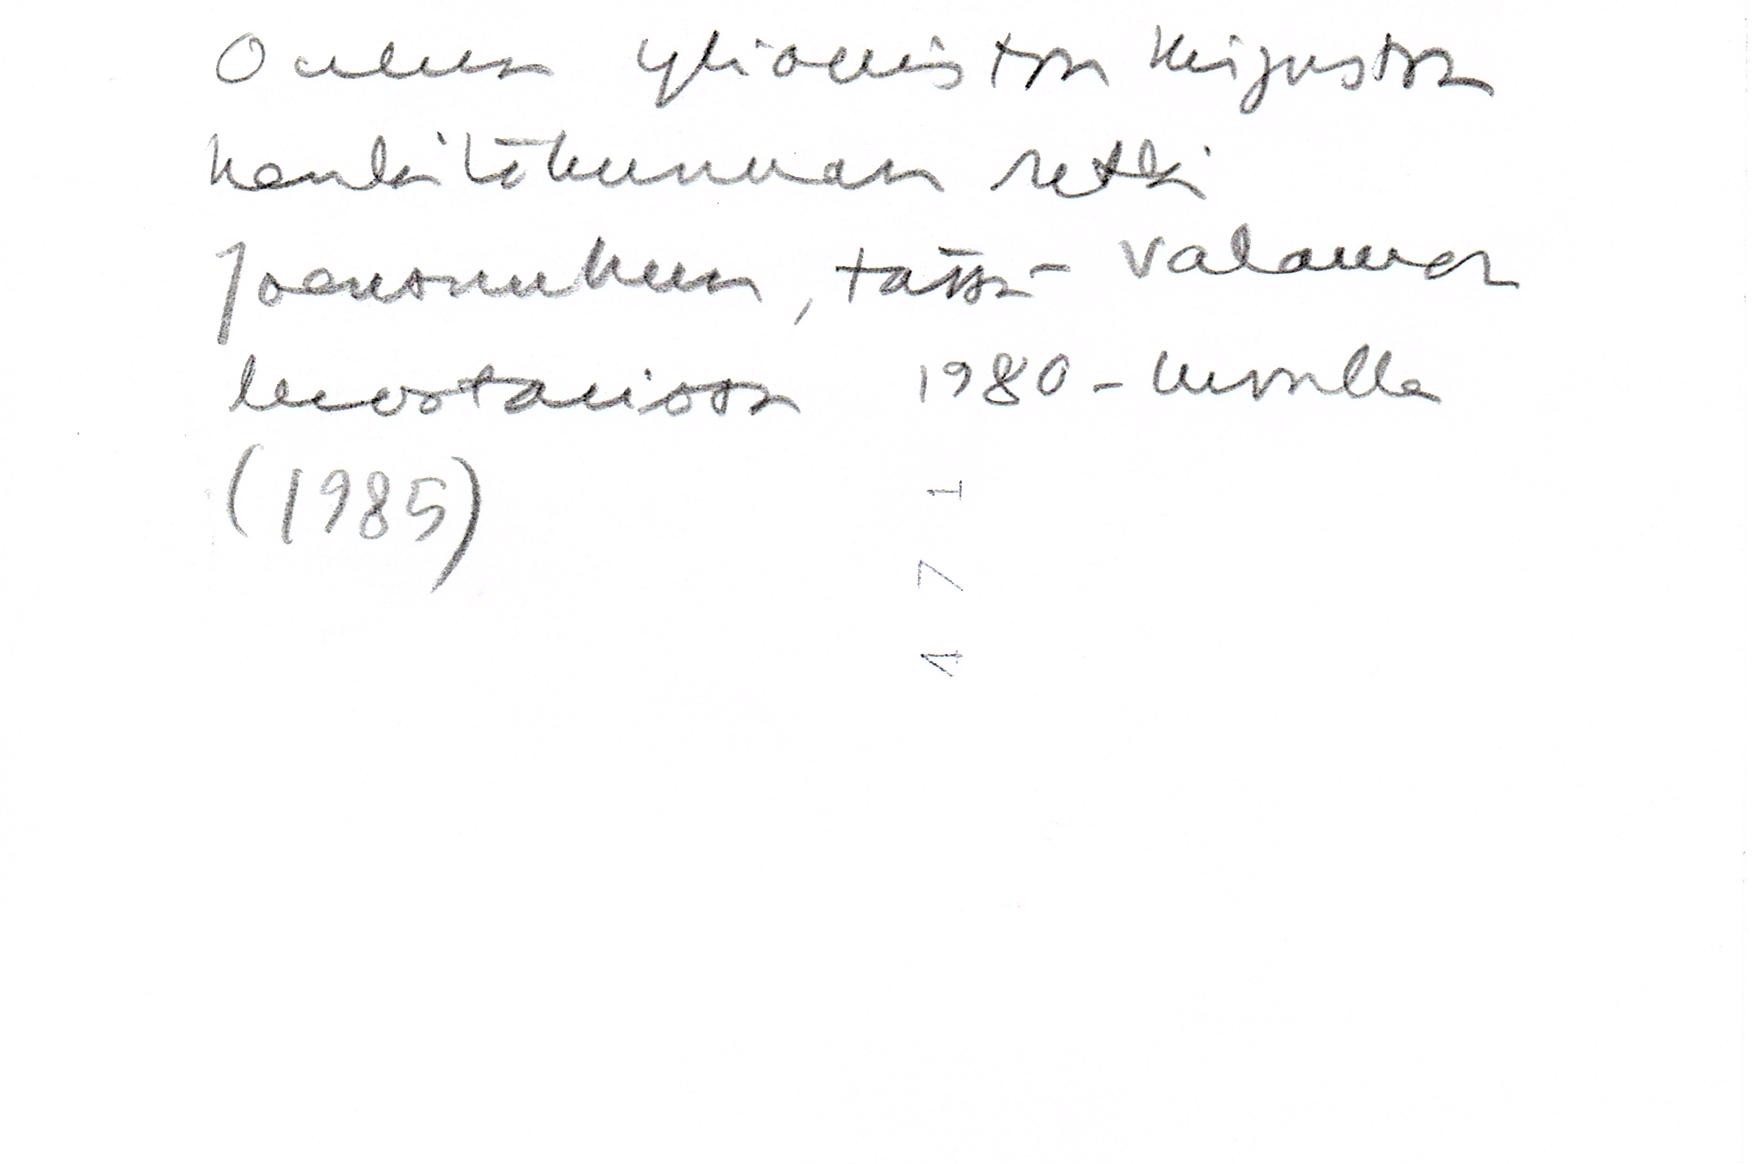 Oulun yliopiston kirjaston
henkilökunnan retki
Joensuuhun, tässä Valamon
luostarissa 1980-luvulla
(1985)
471